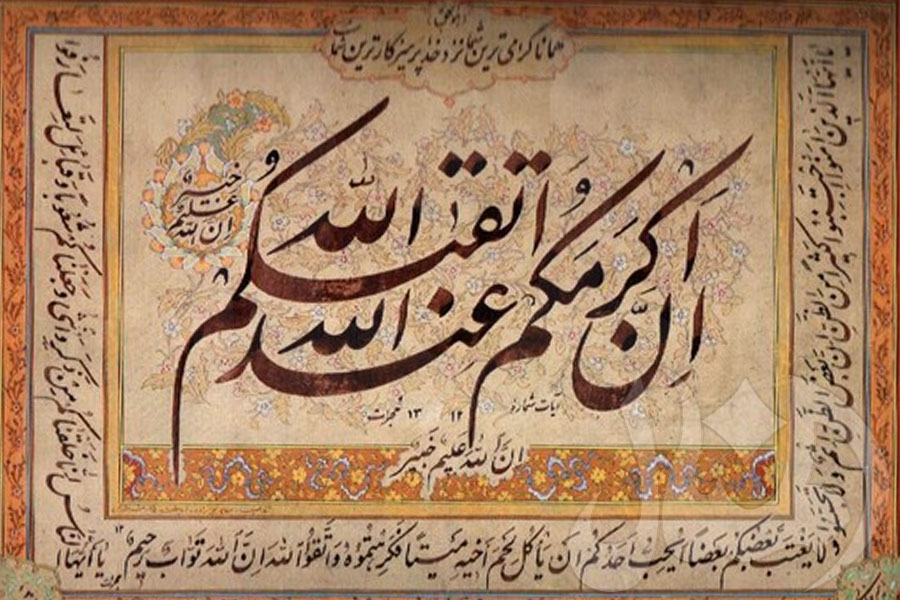 همانا گرامی ترین شما نزد خدا پرهیزکارترین شماست
اِنَّ اَکرَمَکُم عِندَ الله اتقیٰکُم
ان الله علیم خبیر
آیات شماره ۱۲ ۱۳ حجرات
ان الله علیم خبیر
یا ایها الذین امنوا اجتنبوا کثیرا من الظن ان بعض الظن اثم ولا تجسسوا
ولا یغتب بعضکم بعضا ایحب احدکم ان یاکل لحم اخیه میتا فکرهتموه واتقوا الله ان الله تواب رحیم ۱۲ یا ایها
الناس انا خلقناکم من ذکر وانثی وجعلناکم شعوبا وقبائل لتعارفوا